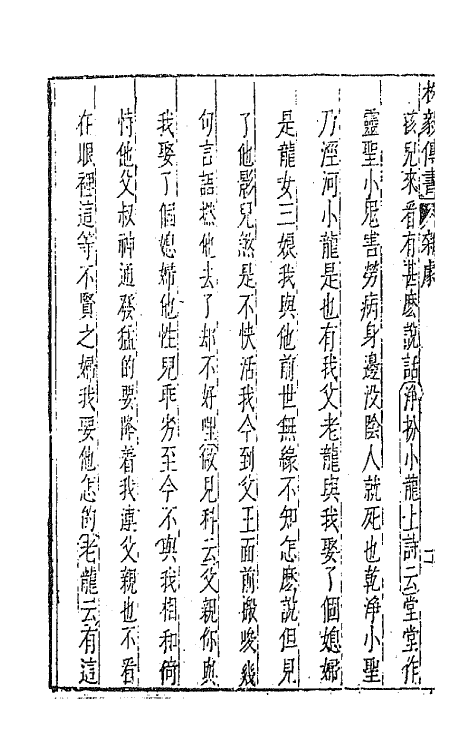 柳毅傳書 雜劇 二
孩兒來看有甚麽說話淨扮小龍上詩云堂堂作
靈聖小鬼害勞病身邊没陰人就死也乾淨小聖
乃涇河小龍是也有我父老龍與我娶了個媳婦
是龍女三娘我與他前世無緣不知怎麽說但見
了他影兒煞是不快活我今到父王面前搬唆幾
句言語攆他去了却不好哩做見科云父親你與
我娶了個媳婦他性兒乖劣至今不與我相和倚
恃他父叔神通發猛的要降着我連父親也不看
在眼裡這等不賢之婦我要他怎的老龍云有這